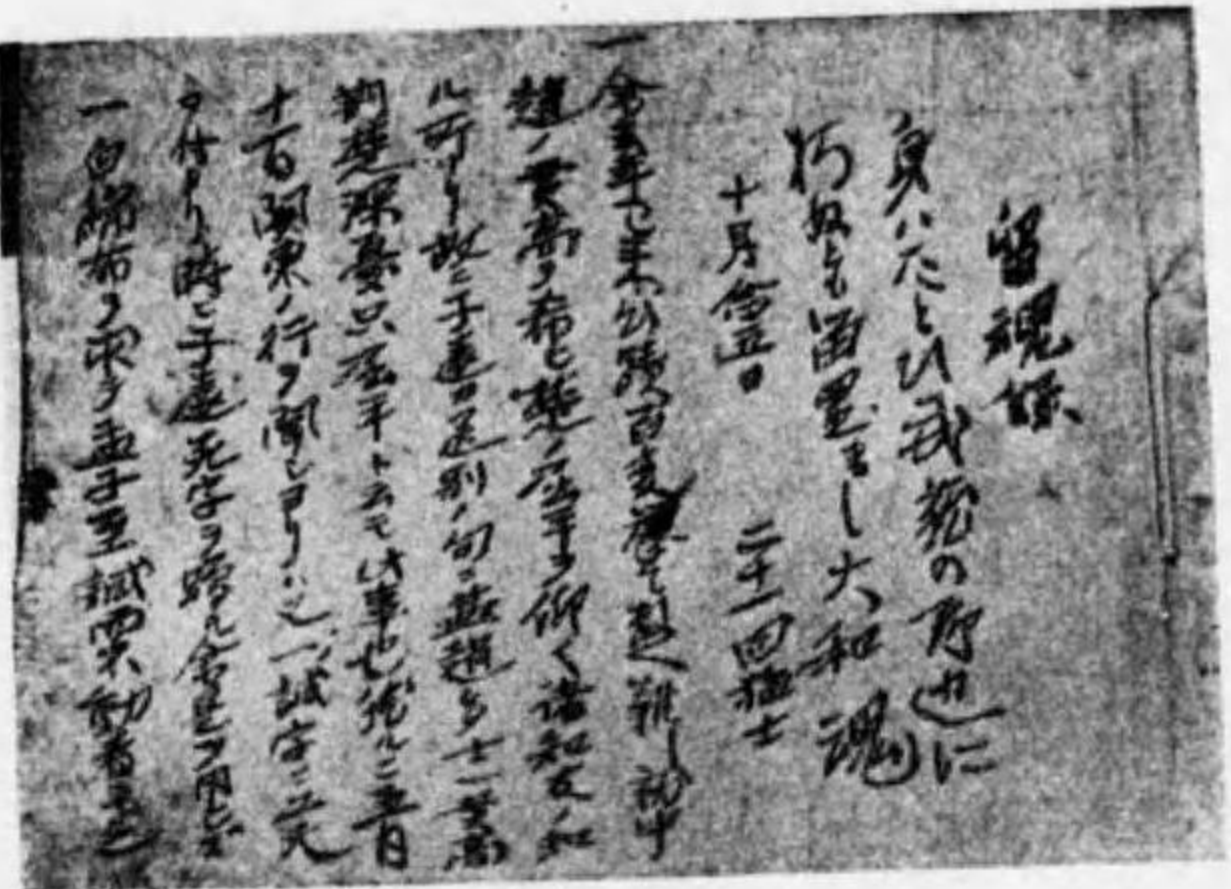 留魂録
身ハたとひ武蔵の野辺に
朽ぬとも留置まし大和魂
十月念五日　二十一回猛士
一 余去年已来心蹟百変挙て数へ難し就中
趙ノ貫高ヲ希ヒ楚ノ屈平ヲ仰ク諸知友ノ知
ル所ナリ故ニ子遠カ送別ノ句ニ燕趙多士一貫高
荊楚深憂只屈平ト云モ此事也然ルニ五月
十一日関東ノ行ヲ聞シヨリハ又一誠字ニ工夫
ヲ付タリ時ニ子遠死字ヲ贈ル余是ヲ用ヒズ
一白綿布ヲ求テ孟子至誠而不動者未之